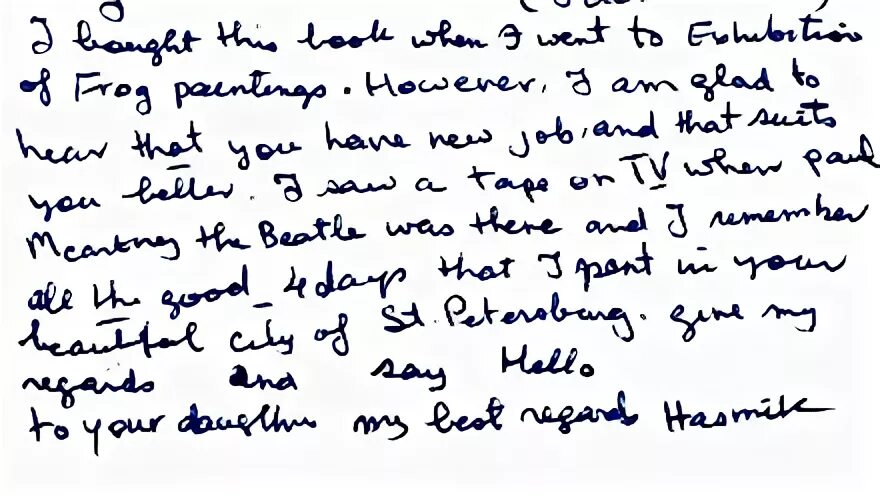 I bought this book when I went to Exhibition
of Frog paintings. However, I am glad to
hear that you have new job, and that suits
you better. I saw a tape on TV when paul
Mcartney the Beatle was there and I remember
all the good 4 days that I spent in your
beautiful city of St. Petersburg. give my
regards and say Hello
to your daughter my best regards Hasmik